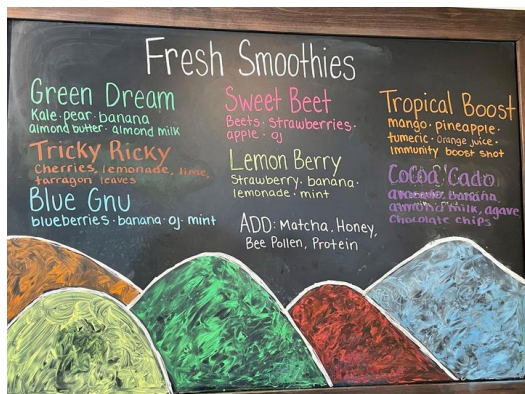 Fresh Smoothies
Green Dream
Kale · pear · banana
almond butter · almond milk
Tricky Ricky
Cherries, lemonade, lime,
tarragon leaves
Blue Gnu
blueberries · banana · oj · mint
Sweet Beet
Beets · Strawberries ·
apple · oj
Lemon Berry
Strawberry · banana ·
lemonade · mint
ADD: Matcha, Honey,
Bee Pollen, Protein
Tropical Boost
mango · pineapple ·
tumeric · Orange juice ·
Immunity boost shot
Cocoa Cado
banana,
almond milk, agave
Chocolate chips